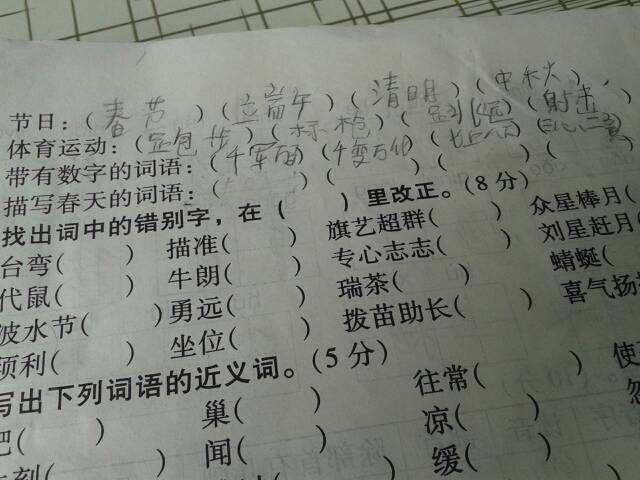 节日：（春节）（端午）（清明）（中秋）
体育运动：（跑步）（标枪）（跳远）（射击）
带有数字的词语：（千军万马）（千变万化）（七上八下）（三心二意）
描写春天的词语：（ ）（ ）（ ）（
找出词中的错别字，在（ ）里改正。（8分）
台弯（ ） 描准（ ） 旗艺超群（ ） 众星棒月（
代鼠（ ） 牛朗（ ） 专心志志（ ） 刘星赶月（
波水节（ ） 勇远（ ） 瑞茶（ ） 蜻蜒（
顷利（ ） 坐位（ ） 拨苗助长（ ） 喜气扬
写出下列词语的近义词。（5分）
巢（ ） 往常（ ） 使
把（ ） 闻（ ） 凉（ ） 忽
刻（ ） 缓（